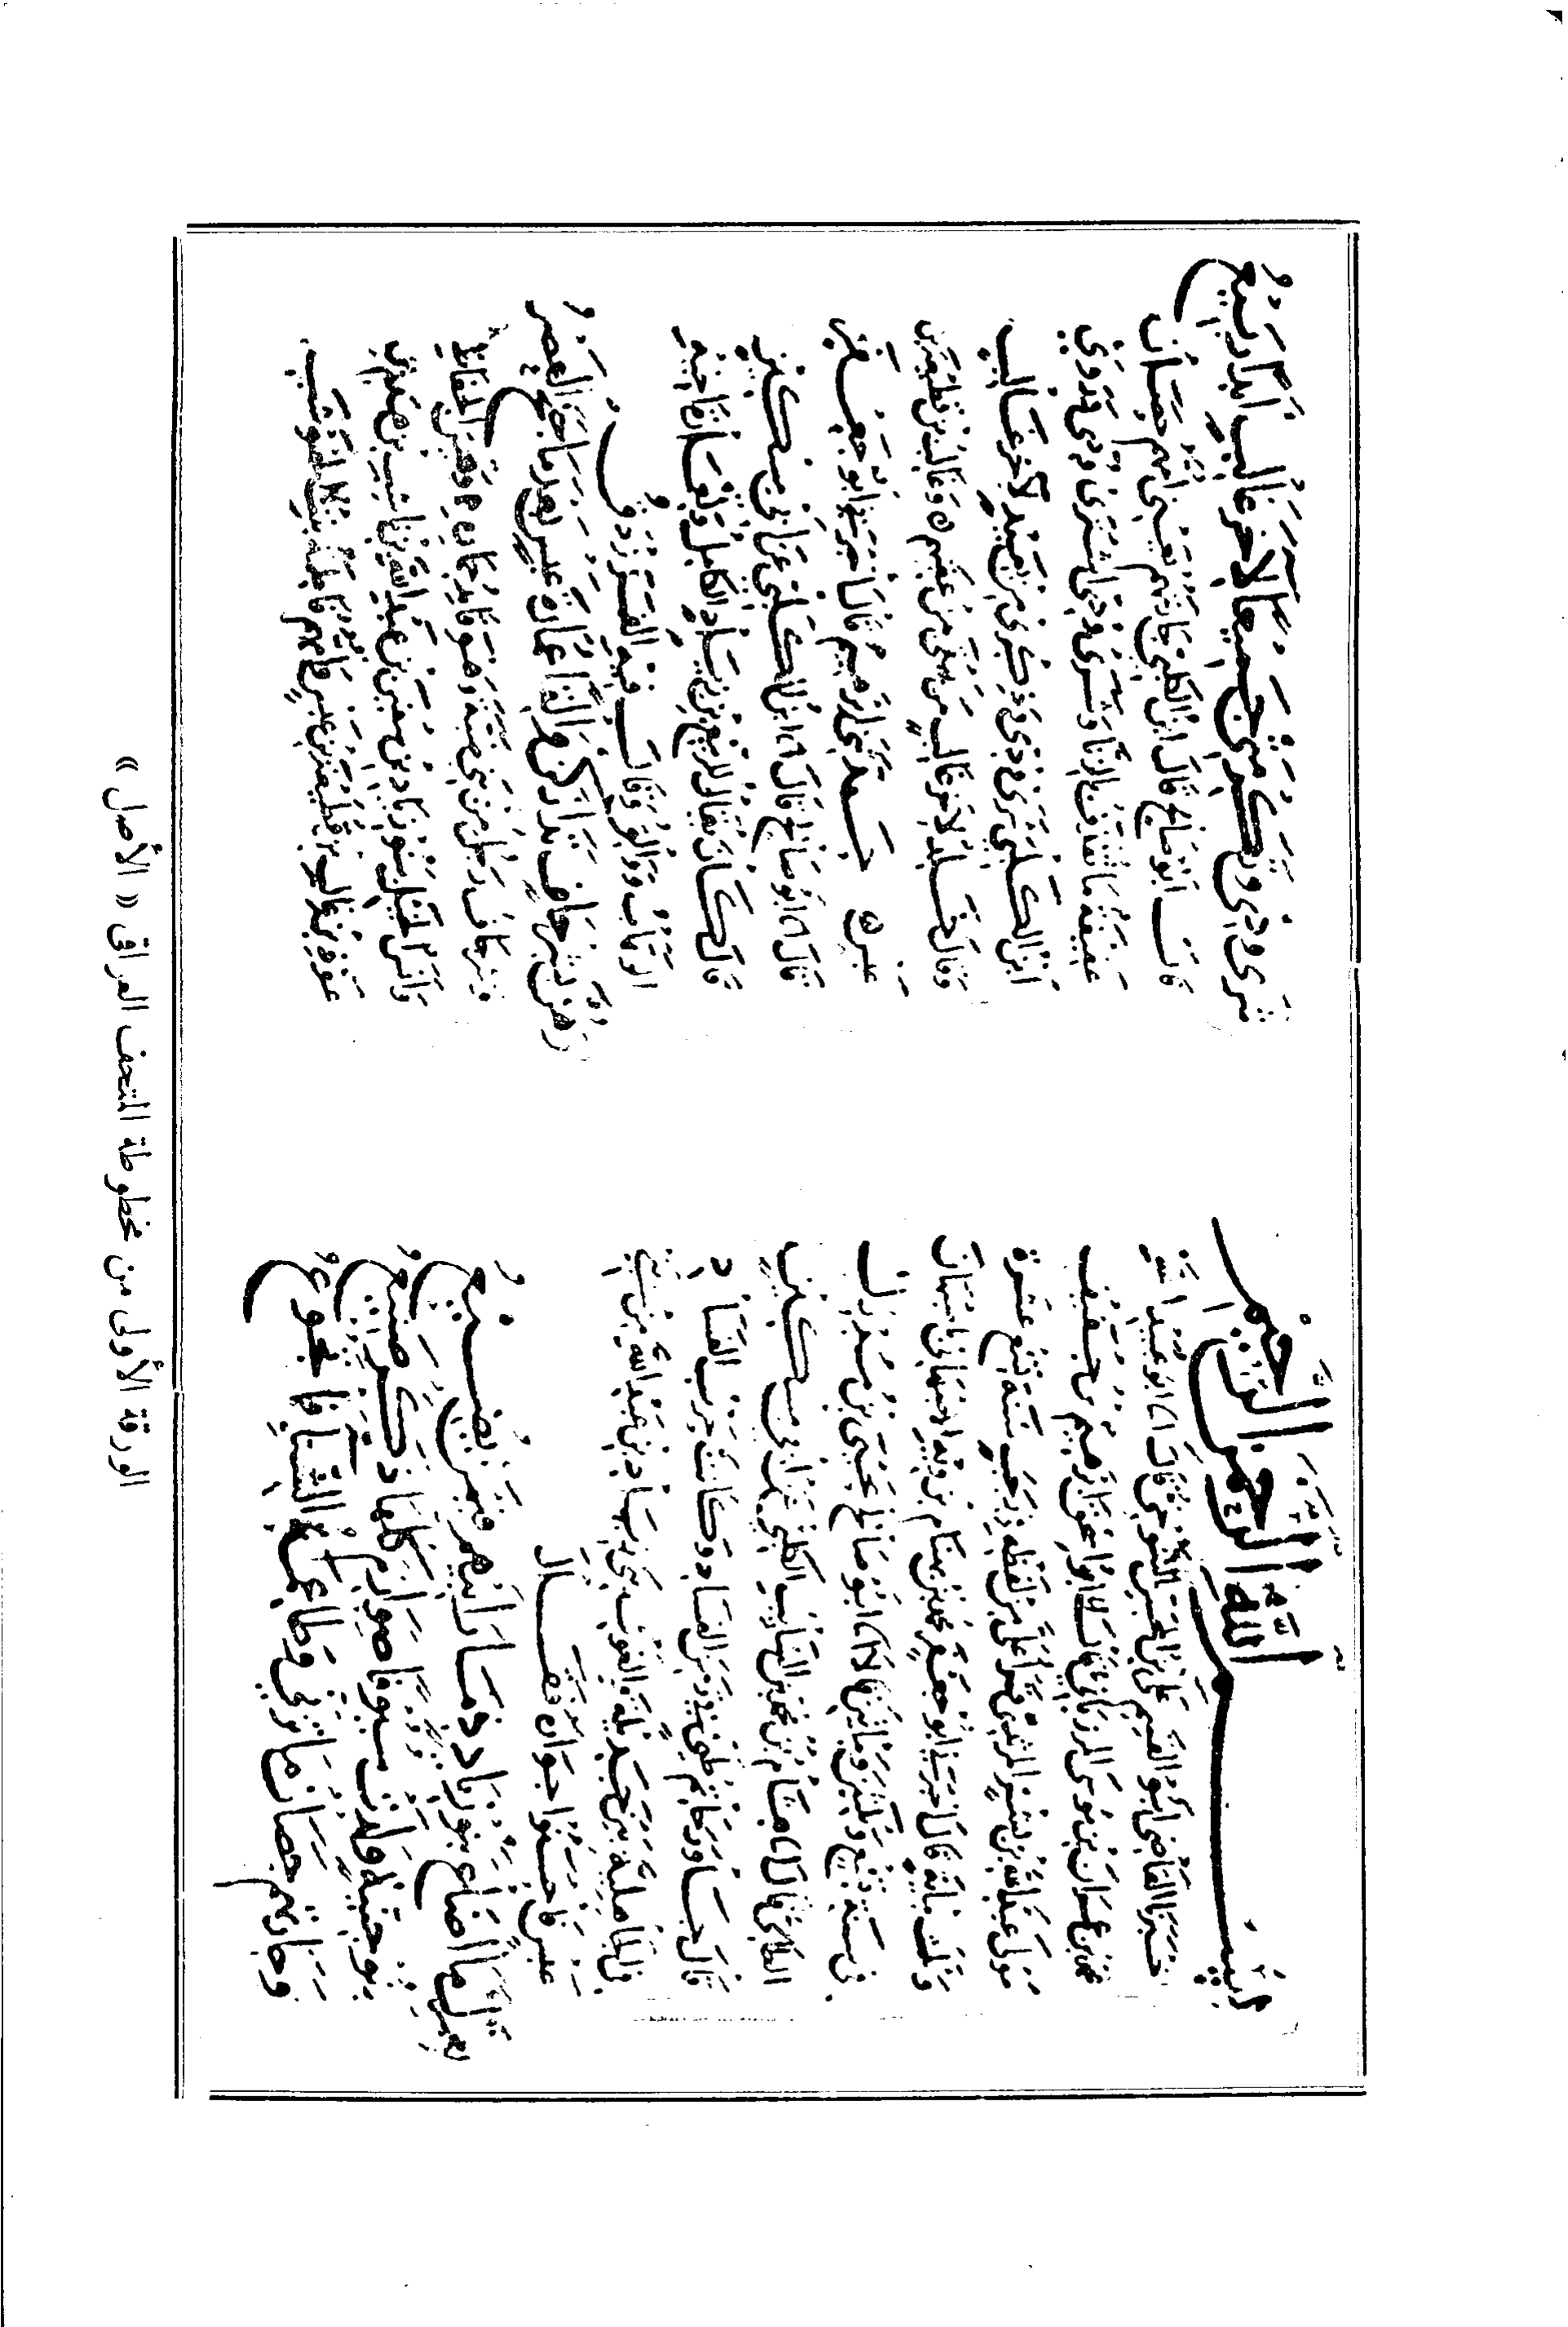 بسم الله الرحمن الرحيم
اخبرنا القاضي ابو القسم علي بن المحسن التنوخي قال نا ابو عبيد الله
محمد بن عمران بن موسى المرزباني قال نا ابو اسحق ابراهيم بن خفيف
مولى عبد الله بن بشير المرثدي قراءة من لفظه في رجب سنة تسع عشرة
وثلث مائة قال اخبرنا ابو جعفر محمد بن
في سنة تسع وثمنين ومائتين قالا نا ابو صالح يحيى بن مدرك
الطائي قال انا هشام بن محمد بن السائب الكلبي عن ابي مسكين
قال جاور حاتم طيئ في زمن الفساد وكانت حرب الفساد
في الجاهلية بين جديلة والغوث بني زياد بن عبد الله من
عبس فاحسنوا جواره فقال
لعمرك ما اضاع بنو زياد ذمار ابيهم فيمن يضيع
بنو جنية ولدت سيوفا صوارم كلها ذكر صنيع
وجارتهم حصان ما تزنى وطاعمة الشتاء فما تجوع
شرى ودي وتكرمتي جميعا لآخر غالب ابدا ربيع
قال ابو صالح قال ابن الكلبي جارتهم يعني امهم حصان
عفيفة ما تقذف بالزنا وشرى ودي اشترى ودي وروى
ابن الكلبي شرى ودي وشكري من بعيد لآخر غالب
وقال خالد لآخر غالب من بقي من عقبهم وغالب بن قطيعة بن
عبس
قال نا ابو صالح قال نا ابن الكلبي عن ابي مسكين
قال كان يقال للربيع بن زياد الكامل ولعمارة اخيه
الوهاب ودالق وقال فيه الفرزدق
وهن بشرحاف تداركن دالقا عمارة عبس بعد ما جنح العصر
شرحاف رجل من بني ضبة وهو قاتل عمارة
وانس الخيل بنو زياد بن سفين بن عبد الله بن ناشب بن هدم بن
عوذ بن غالب بن قطيعة بن عبس وامهم فاطمة بنت الخرشب
الورقة الأولى من مخطوطة المتحف العراقي « الأصل »